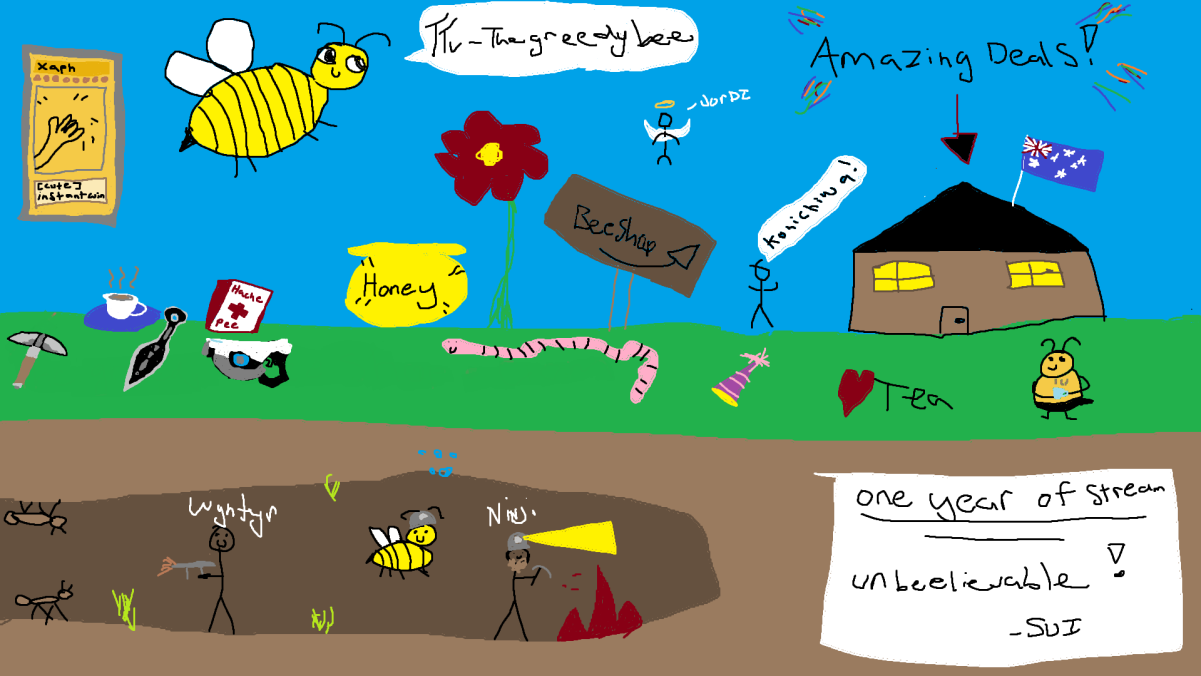 xaph
[cute]
instantwin
TTv-Thegreedybee
Amazing Deals!
JorDI
Konichiwa!
Bee Shop
Honey
Hache
Pee
Tea
Wyntyr
Ninji
one year of stream
unbeelievable!
-SUI